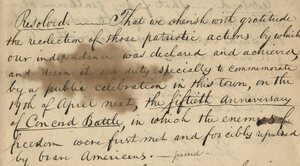 Resolved. — That we cherish with gratitude
the recollection of those patriotic actions by which
our independence was declared and achieved,
and deem it our duty specially to commemorate
by a public celebration in this town, on the
19th of April next, the fiftieth anniversary
of Concord Battle in which the enemies of
freedom were first met and forcibly repulsed
by brave Americans. —